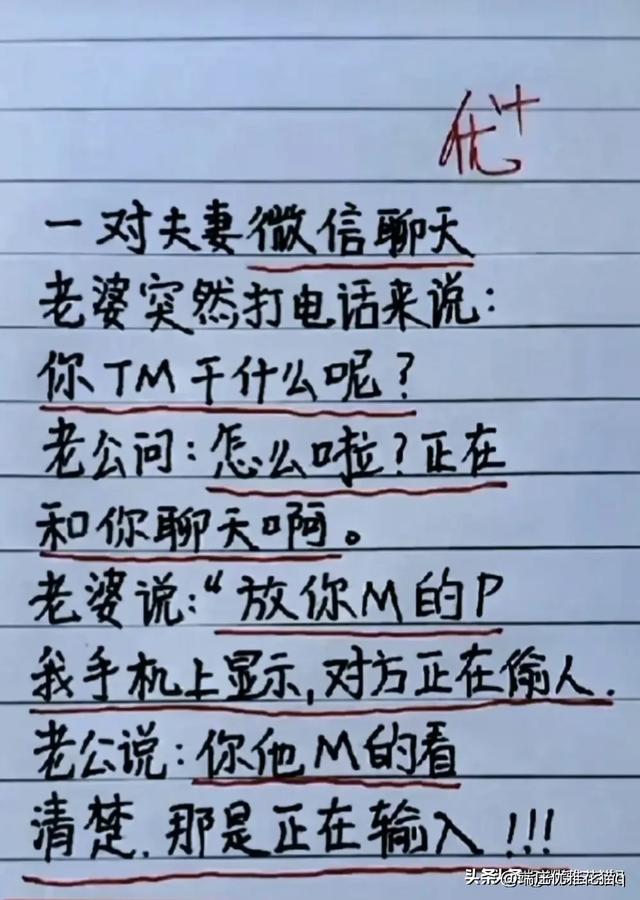 优+
一对夫妻微信聊天
老婆突然打电话来说：
你TM干什么呢？
老公问：怎么啦？正在
和你聊天啊。
老婆说：“放你M的P
我手机上显示，对方正在偷人.
老公说：你他M的看
清楚.那是正在输入!!!
头条@端庄优雅花猫q